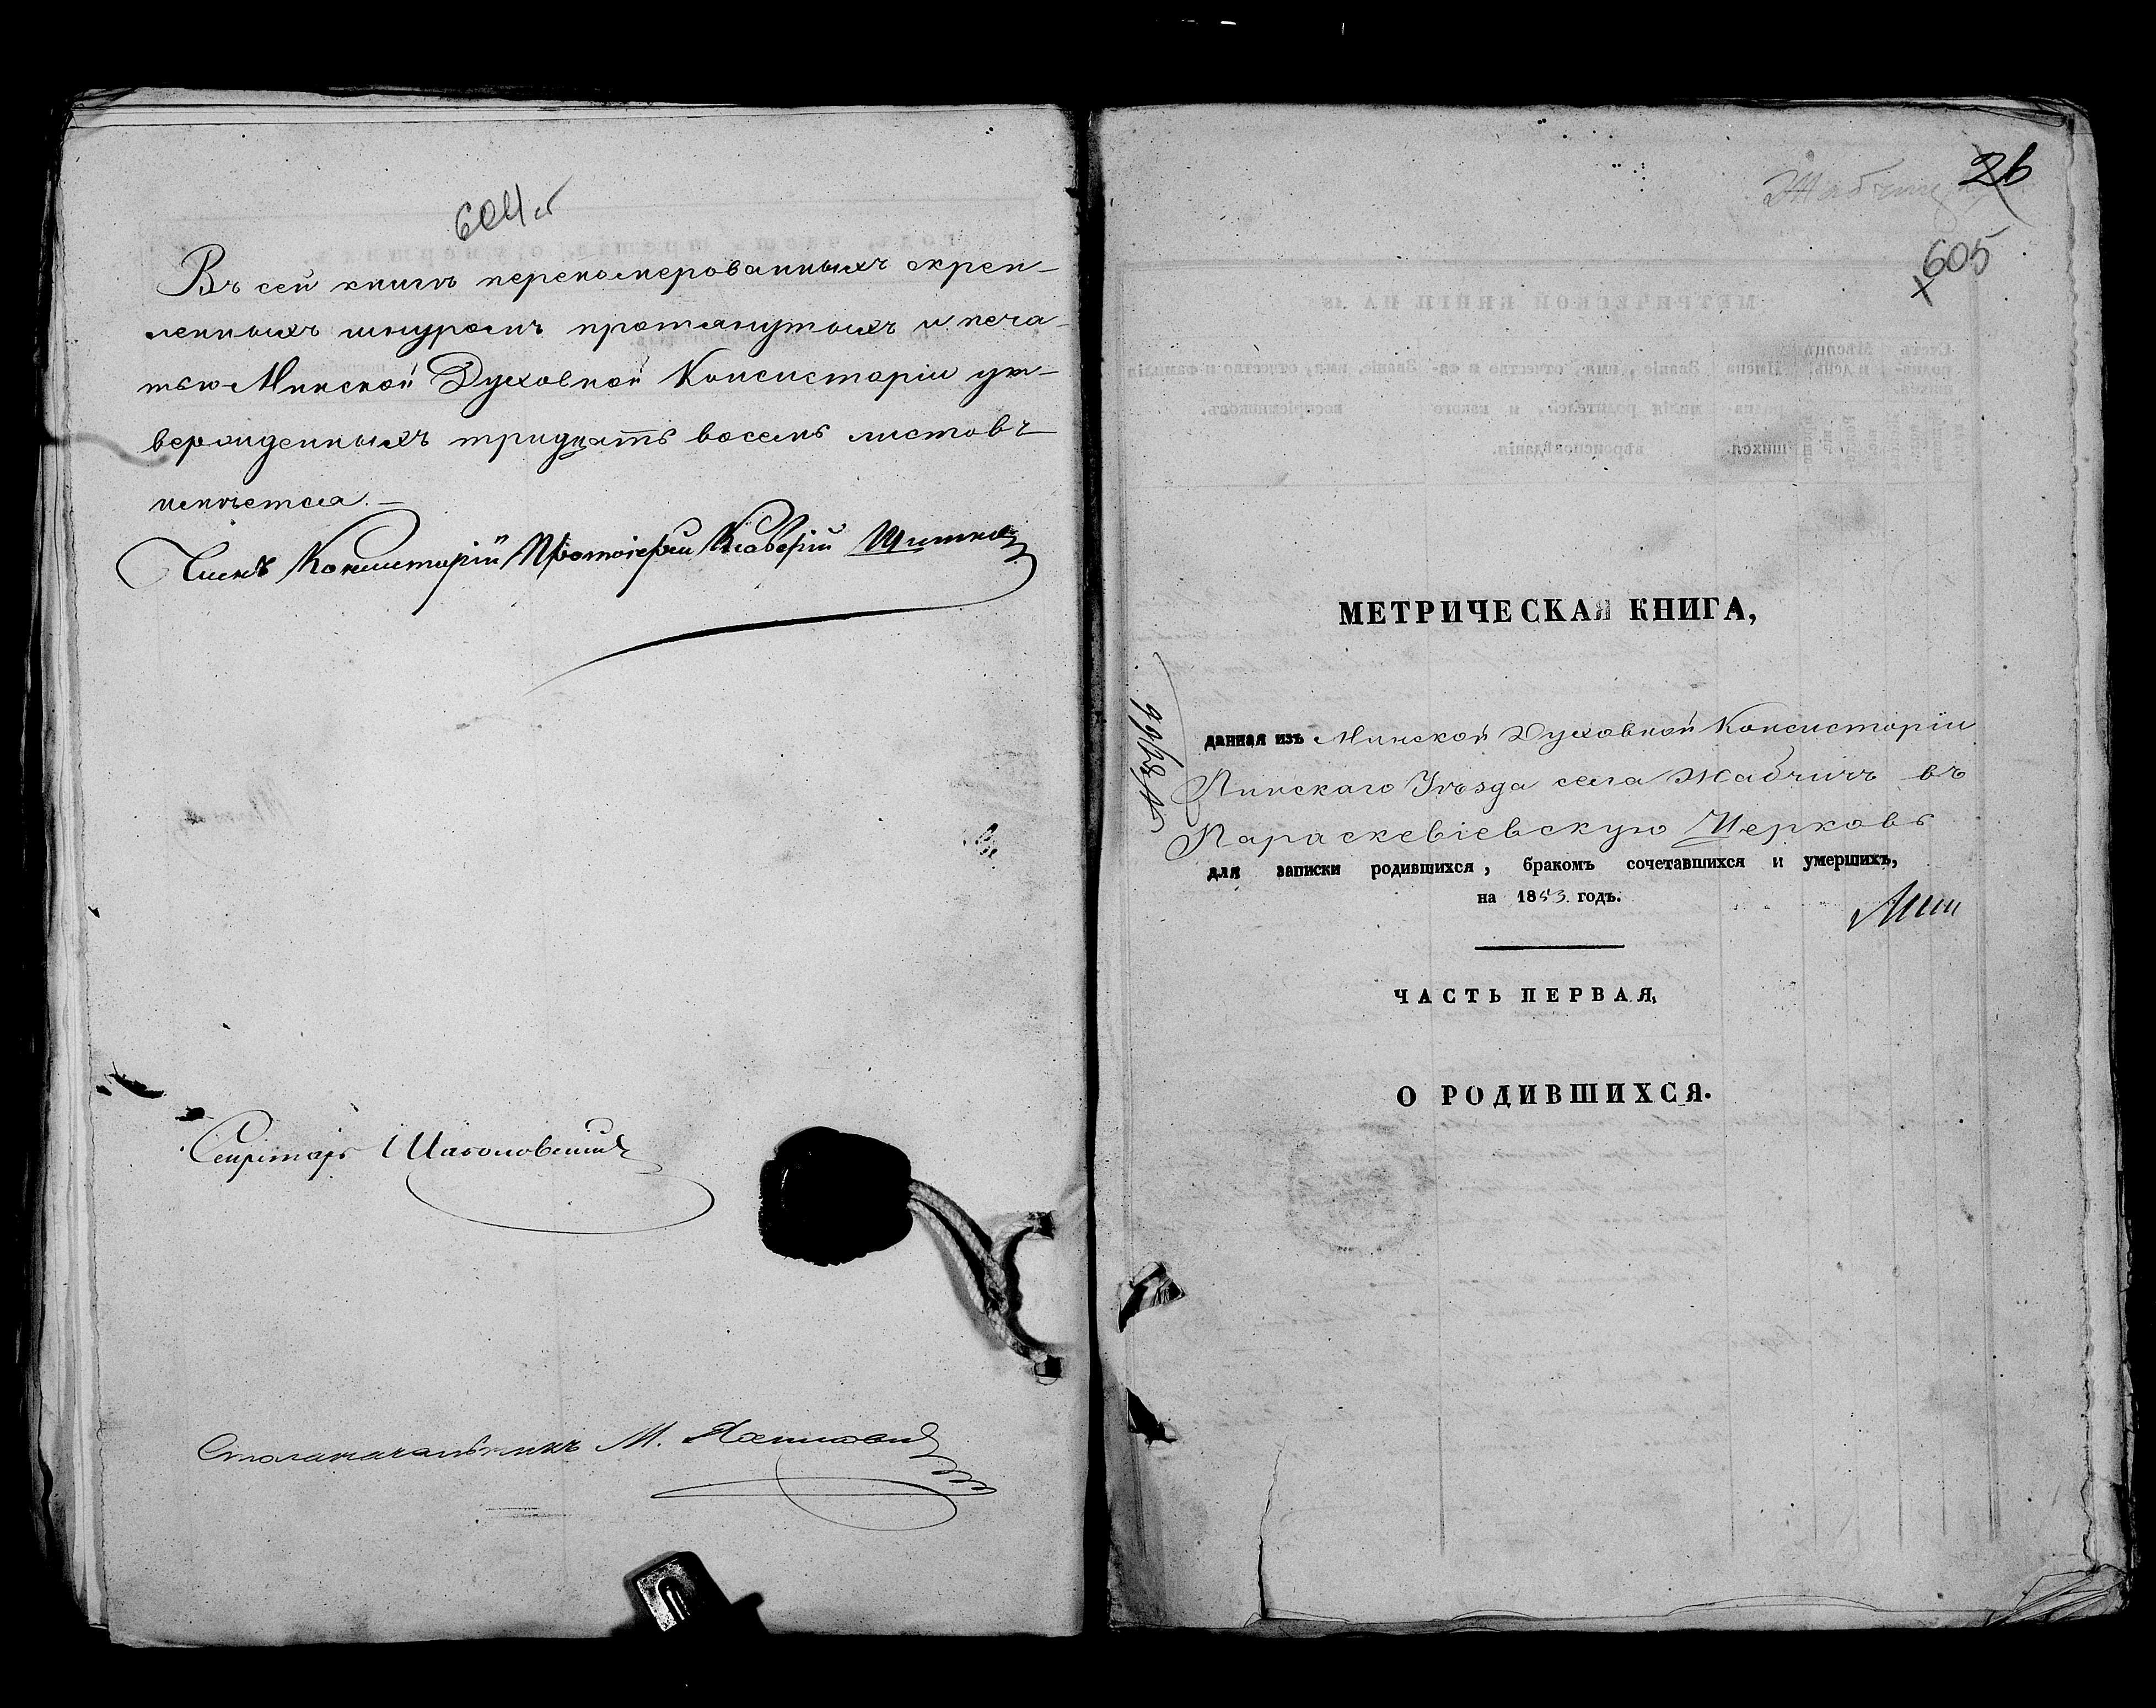 604 об
Въ сей книгѣ перекомерованныхъ скреп-
ленныхъ шнуромъ протянутыхъ и печа-
тью Минской Духовной Консисторіи ут-
вержденныхъ тридцать восемь листовъ
имѣется.—
Членъ Консисторіи Протоіерей
Секретарь
Столоначальникъ М.
26
605
МЕТРИЧЕСКАЯ КНИГА,
данная изъ Минской Духовной Консисторіи
Пинскаго Уѣзда села Жабчичъ въ
Параскевіевскую Церковь
для записки родившихся, бракомъ сочетавшихся и умершихъ,
на 1853. годъ.
ЧАСТЬ ПЕРВАЯ,
О РОДИВШИХСЯ.